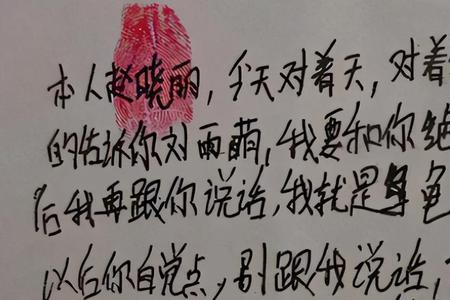 本人赵晓丽，今天对着天，对着
的告诉你刘雨萌，我要和你绝
后我再跟你说话，我就是龟
以后你自觉点，别跟我说话，